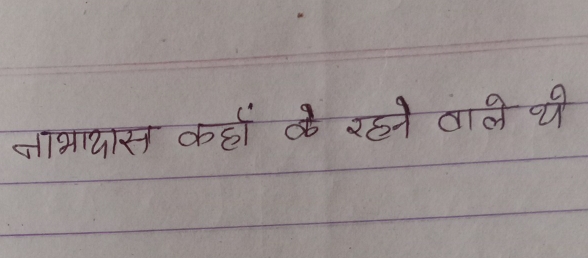 नाभादास कहाँ के रहने वाले थे